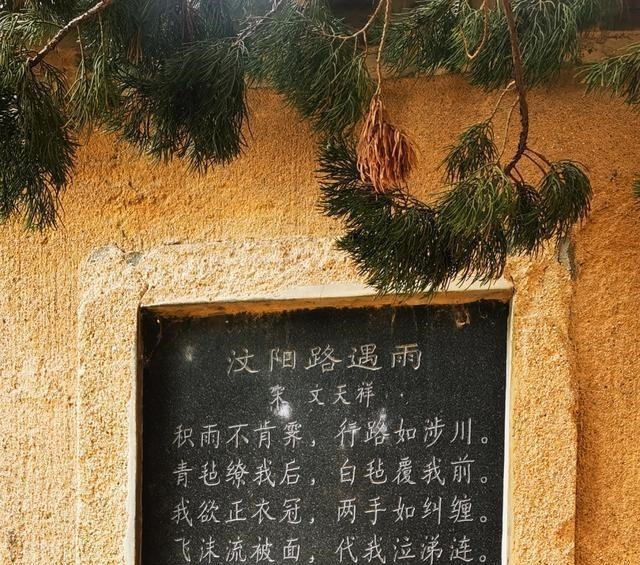 汶阳路遇雨
宋 文天祥
积雨不肯霁，行路如涉川。
青毡缭我后，白毡覆我前。
我欲正衣冠，两手如纠缠。
飞沫流被面，代我泣涕涟。